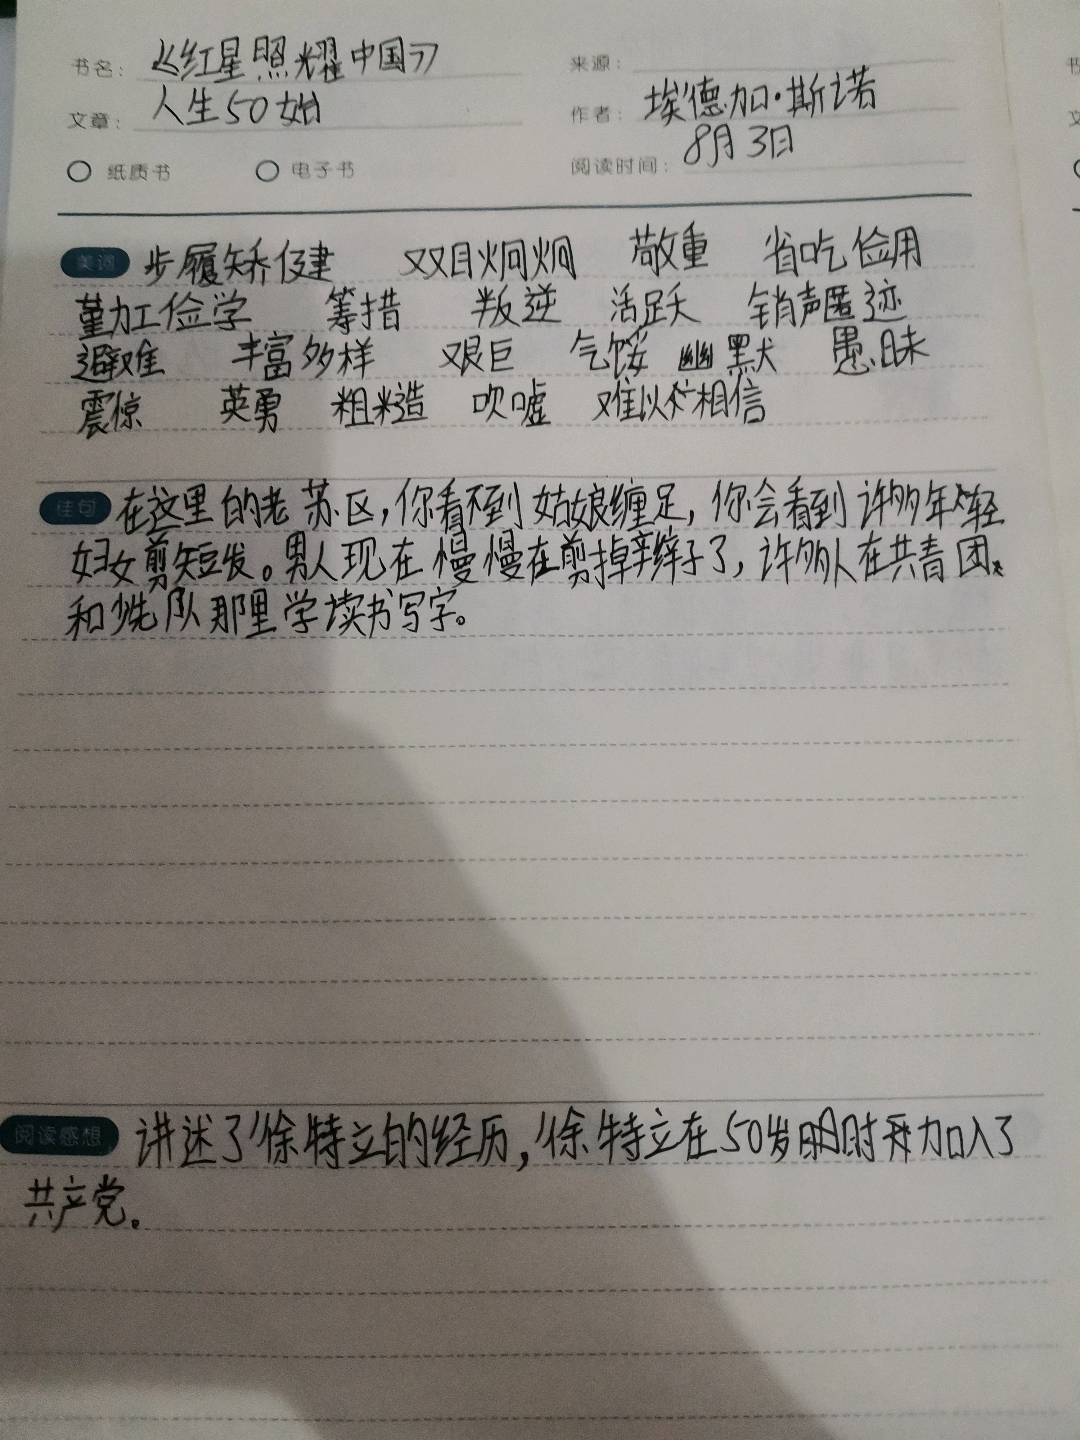 书名： 《红星照耀中国》 来源：
文章： 人生50始 作者： 埃德加·斯诺
纸质书 电子书 阅读时间： 8月3日
美词 步履矫健 双目炯炯 敬重 省吃俭用
勤工俭学 筹措 叛逆 活跃 销声匿迹
避难 丰富多样 艰巨 气馁 幽默 愚昧
震惊 英勇 粗糙 吹嘘 难以相信
佳句 在这里的老苏区，你看不到姑娘缠足，你会看到许多年轻
妇女剪短发。男人现在慢慢在剪掉辫子了，许多人在共青团
和少先队那里学读书写字。
阅读感想 讲述了徐特立的经历，徐特立在50岁时加入了
共产党。
书
文